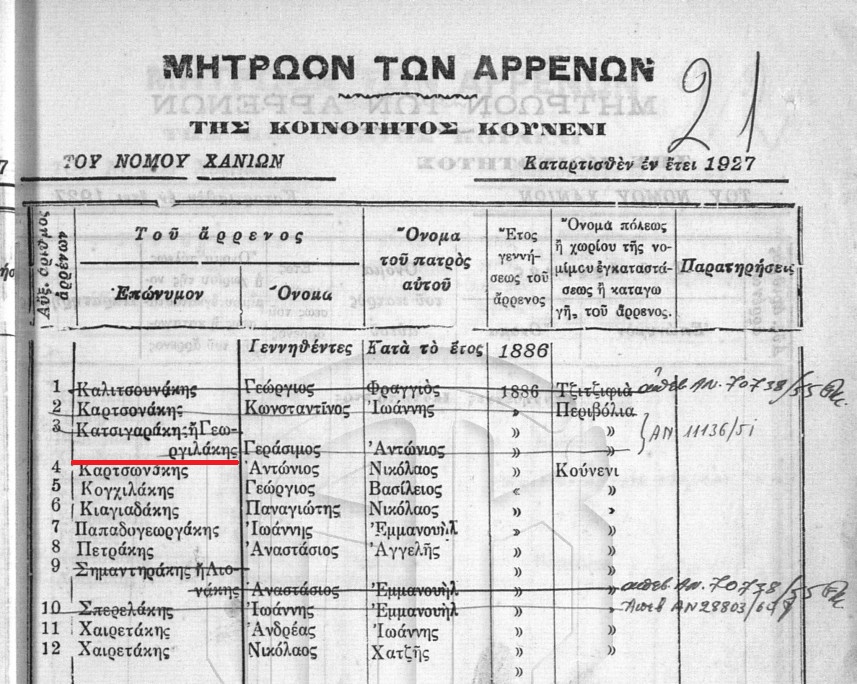 21
ΜΗΤΡΩΟΝ ΤΩΝ ΑΡΡΕΝΩΝ
ΤΗΣ ΚΟΙΝΟΤΗΤΟΣ ΚΟΥΝΕΝΙ
ΤΟΥ ΝΟΜΟΥ ΧΑΝΙΩΝ Καταρτισθὲν ἐν ἔτει 1927
Αὔξ. ἀριθμὸς ἀρρένων
Τοῦ ἄρρενος
Ἐπώνυμον
Ὄνομα
Ὄνομα
τοῦ πατρὸς
αὐτοῦ
Ἔτος
γεννή-
σεως τοῦ
ἄρρενος
Ὄνομα πόλεως
ἢ χωρίου τῆς νο-
μίμου ἐγκαταστά-
σεως ἢ καταγω
γῆ, τοῦ ἄρρενος.
Παρατηρήσεις
Γεννηθέντες Κατὰ τὸ ἔτος 1886
1 Καλιτσουνάκης Γεώργιος Φραγγιὸς 1886 Τζιτζιφιὰ ἀπεβ. ΑΝ. 70738/55
2 Καρτσονάκης Κωνσταντῖνος Ἰωάννης » Περιβόλια
3 Κατσιγαράκης ἢ Γεω- » » ΑΝ 11136/51
ργιλάκης Γεράσιμος Ἀντώνιος » »
4 Καρτσωνάκης Ἀντώνιος Νικόλαος » Κούνενι
5 Κογχιλάκης Γεώργιος Βασίλειος « »
6 Κιαγιαδάκης Παναγιώτης Νικόλαος » »
7 Παπαδογεωργάκης Ἰωάννης Ἐμμανουὴλ » »
8 Πετράκης Ἀναστάσιος Ἀγγελῆς » »
9 Σημαντηράκης ἢ Λιο- » »
νάκης Ἀναστάσιος Ἐμμανουὴλ » » ἀπεβ. ΑΝ. 70738/55
10 Σπερελάκης Ἰωάννης Ἐμμανουὴλ » » ΑΝ 28803/
11 Χαιρετάκης Ἀνδρέας Ἰωάννης » »
12 Χαιρετάκης Νικόλαος Χατζῆς » »
» »